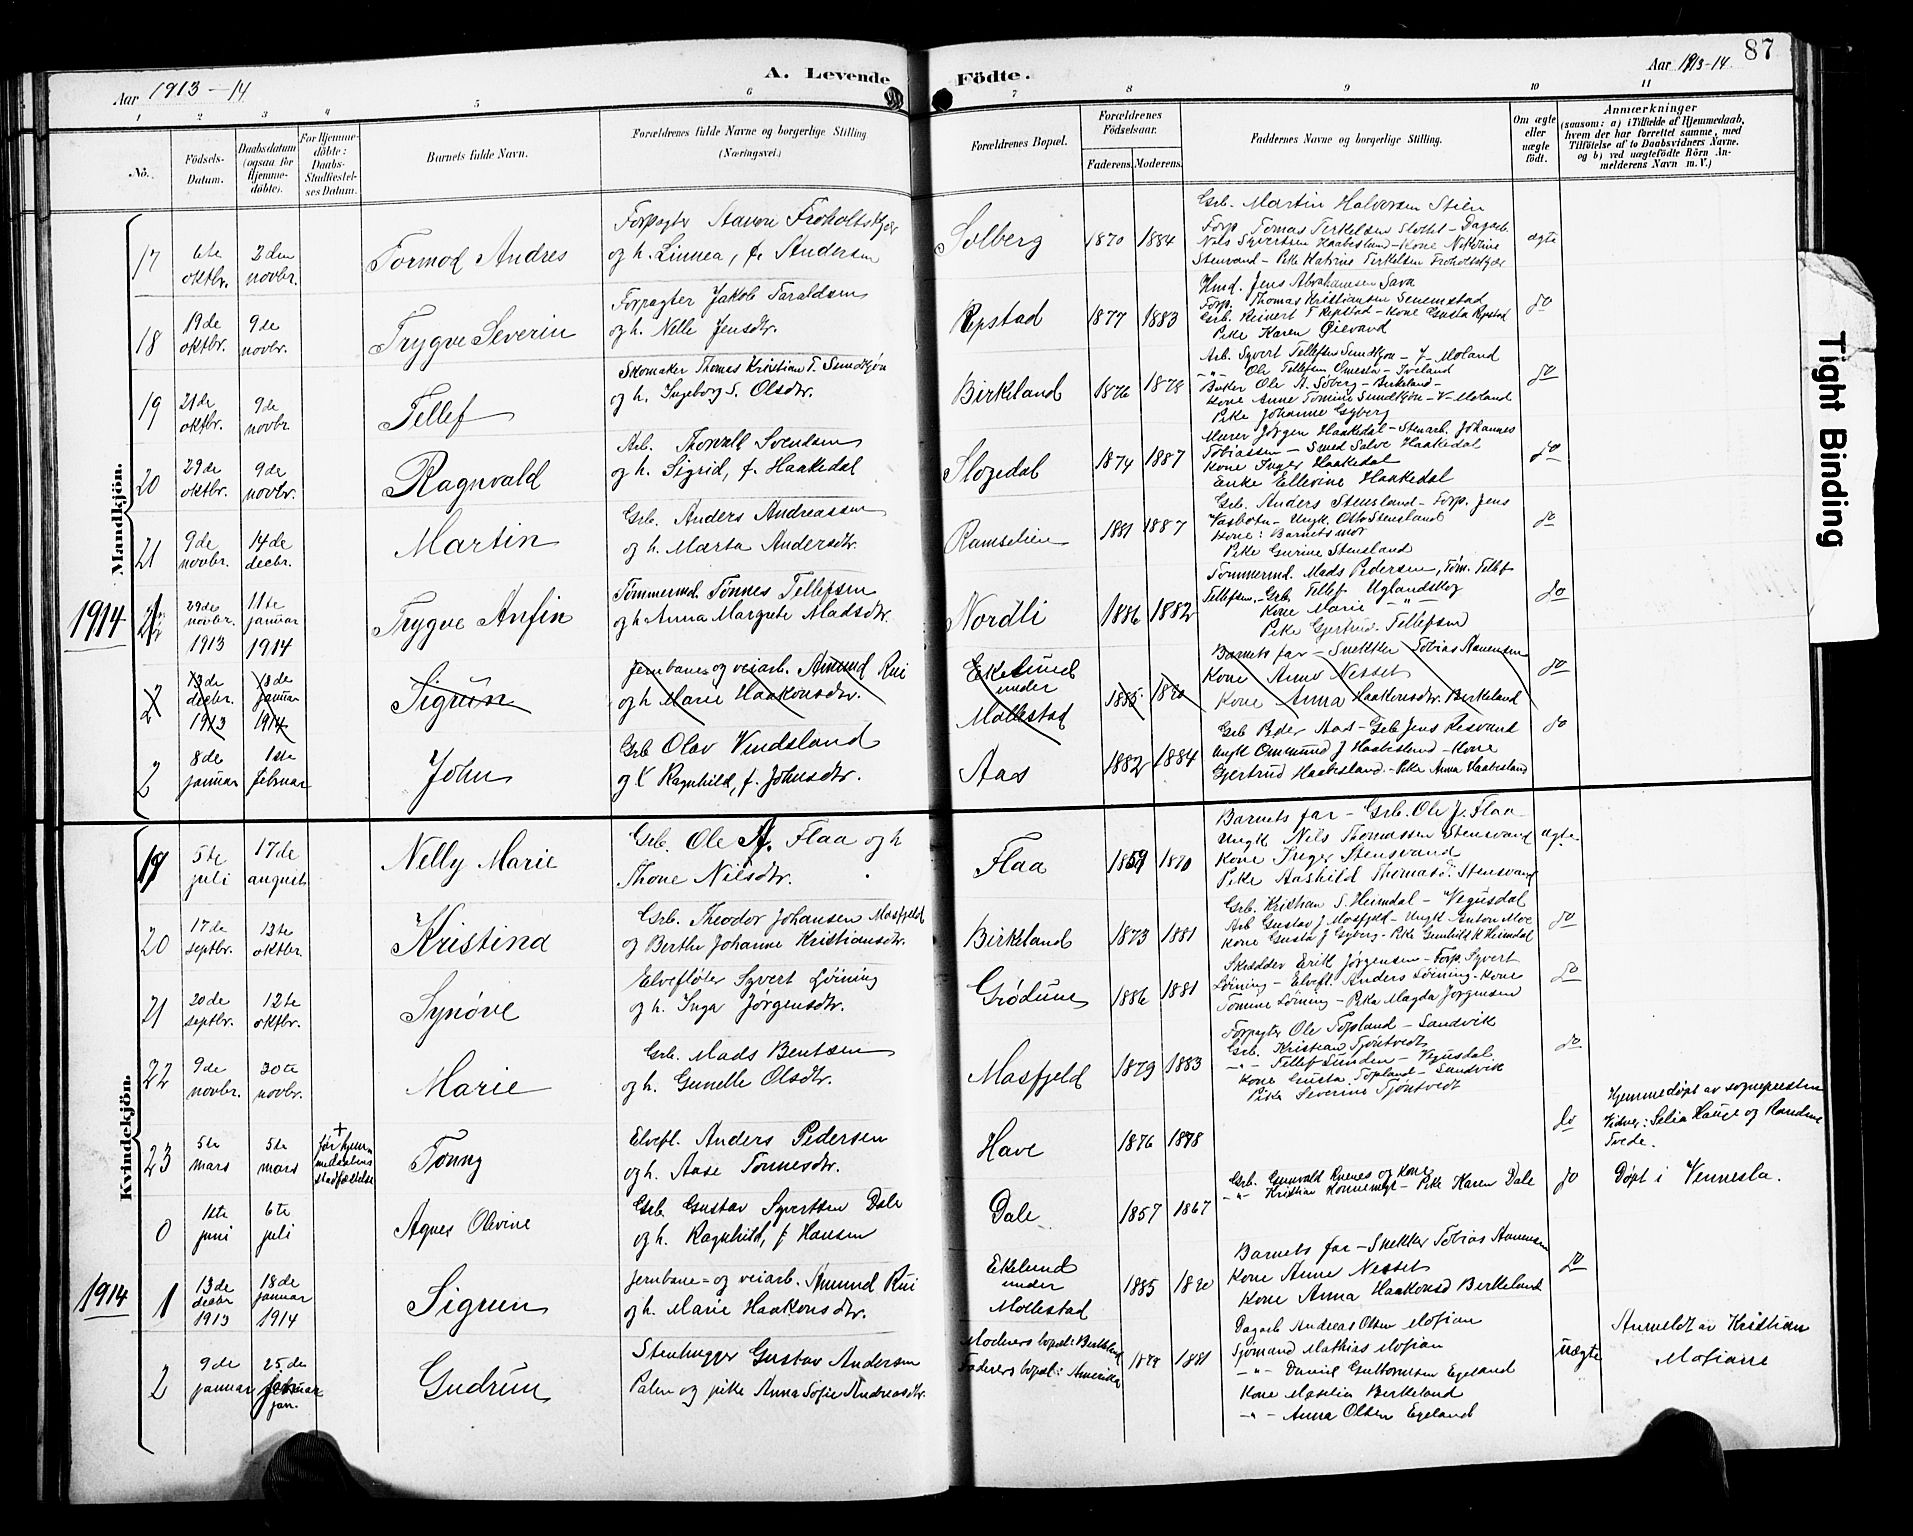 87
Aar 1913-14
A. Levende Födte.
Aar 1913-14
1 2 3 4 5 6 7 8 9 10 11
No.
Födsels-Datum.
Daabsdatum (ogsaa for Hjemme-döbte).
For Hjemme-döbte: Daabs-Stadfæstel-ses Datum.
Barnets fulde Navn.
Forældrenes fulde Navne og borgerlige Stilling (Næringsvei.)
Forældrenes Bopæl.
Forældrenes Födselsaar.
Faderens. Moderens.
Faddernes Navne og borgerlige Stilling.
Om ægte eller uægte födt.
Anmærkninger
(saasom: a) i Tilfælde af Hjemmedaab, hvem der har forrettet samme, med Tilföielse af to Daabsvidners Navne. og b) ved uægtefödte Börn An-melderens Navn m. V.)
Mandkjön.
17
6te oktbr.
2den novbr.
Tormod Andres
Forpagter Aavon Froholtskjær
og h. Linnea, f. Andersen
Solberg
1870 1884
Grb. Martin Halvorsen Stien
Forp Tomas Terkelsen Slottet - Dagarb.
Nils Syvertsen Haabesland - Kone Nikoline
Stenvand - Pike Katrine Terkelsen Froholtskjær
ægte
18
19de oktbr.
9de novbr.
Trygve Severin
Forpagter Jakob Taraldsen
og h. Nelle Jensdtr.
Repstad
1877 1883
Hmd. Jens Abrahamsen Sava
Forp. Thomas Kristiansen Senumstad
Grb. Reinert T Repstad - Kone Gusta Repstad
Pike Karen Øievand
do
19
21de oktbr.
9de novbr.
Tellef
Skomaker Thomes Kristian T. Sundtjøn
og h. Ingeborg S. Olsdtr.
Birkeland
1876 1878
Arb. Syvert Tellefsen Sundtjøn - Y. Moland
-"- Ole Tellefsen Omesta - Iveland
Baker Ole A. Søberg - Birkeland -
Kone Anne Tomine Sundtjøn - V. Moland
Pike Johanne Gyberg
do
20
29de oktbr.
9de novbr.
Ragnvald
Arb. Thorvald Svendsen
og h. Sigrid, f. Haakedal
Slogedal
1874 1887
Murer Jørgen Haakedal - Stenarb. Johannes
Tobiassen - Smed Salve Haakedal
Kone Inger Haakedal
Enke Ellevine Haakedal
do
21
9de novbr.
14de decbr.
Martin
Grb. Anders Andreassen
og h. Marta Andersdtr.
Ramselien
1881 1887
Grb. Anders Stensland - Forp. Jens
Vasbotn - Ungk. Otto Stensland
Kone: Barnets mor
Pike Gurine Stensland
do
1914
29de novbr. 1913
11te januar 1914
Trygve Anfin
Tømmermd. Tønnes Tellefsen
og h Anna Margrete Madsdtr.
Nordli
1886 1882
Tømmermd. Mads Pedersen, Tøm. Tellef
Tellefsen - Grb Tellef Uglandskog
Kone Marie -"-
Pike Gjertrud Tellefsen
do
2
13de decbr. 1913
18de januar 1914
Sigrun
Jernbane- og veiarb. Amund Rui
og h. Marie Haakonsdtr.
Ekelund under Mollestad
1885 1890
Barnets far - Snekker Tobias Aanensen
Kone Anne Nesset
Kone Anna Haakonsdtr. Birkeland
do
2
8de januar
1ste februar
John
Grb Olav Vindsland
og h Ragnhild, f. Johnsdtr.
Aas
1882 1884
Grb Peder Aas - Grb Jens Resvand
Ungk Ommund J Haabesland - Kone
Gjertrud Haabesland - Pike Anna Haabesland
do
Kvindekjön.
19
5te juli
17de august
Nelly Marie
Grb. Ole A. Flaa og h
Thone Nilsdtr.
Flaa
1859 1870
Barnets far - Grb. Ole J. Flaa
Ungk Nils Thomassen Stensvand
Kone Inger Stensvand
Pike Aashild Thomasd. Stensvand
ægte
20
17de septbr.
12te oktbr.
Kristina
Grb. Theodor Johansen Mosfjeld
og Berthe Johanne Kristiansdtr.
Birkeland
1873 1881
Grb. Kristian S. Heimdal - Vegusdal
Arb Gustav J Mosfjeld - Ungk Anton Moe
Kone Gusta J Gyberg - Pike Gunhild K Heimdal
do
21
20de septbr.
12te oktbr.
Synøve
Elvefløter Syvert Løining
og h. Inga Jørgensdtr.
Grødum
1886 1881
Skredder Erik Jørgensen - Forp. Syvert
Løining - Elvefl. Anders Løining - Kone
Tomine Løining - Pike Magda Jørgensen
do
22
9de novbr.
30te novbr.
Marie
Grb. Mads Bentsen
og h. Gunelle Olsdtr.
Mosfjeld
1879 1883
Forpagter Ole Topland - Sandvik
Grb. Kristian Tjøntvedt
-"- Tellef Sunden - Vegusdal.
Kone Gusta Topland - Sandvik
Pike Severine Tjøntvedt
do
23
5te mars
5te mars
+
før hjem-medaabens stadfæstelse
Tonny
Elvefl. Anders Pedersen
og h. Aase Tønnesdtr.
Have
1876 1878
do
Hjemmedøpt av sognepresten
Vidner: Selia Hauge og Randine
Tvede.
0
1ste juni
6te juli
Agnes Olevine
Grb. Gustav Syvertsen Dale
og h. Ragnhild, f Hansen
Dale
1857 1867
Grb. Gunvald Renes og Kone
-"- Kristian Konnemyr - Pike Karen Dale
do
Døpt i Vennesla.
1914
1
13de decbr 1913
18de januar 1914
Sigrun
Jernbane- og veiarb. Amund Rui
og h. Marie Haakonsdtr.
Ekelund under Mollestad
1885 1890
Barnets far - Snekker Tobias Aanensen
Kone Anne Nesset
Kone Anna Haakonsd Birkeland
do
2
9de januar
25de februar jan.
Gudrun
Stenhugger Gustav Andersen
Palm og pike Anna Sofie Andreasdtr.
Moderens bopæl: Birkeland
Faderens bopæl: Amerika
1879 1881
Dagarb Andreas Olsen Mosian
Sjømand Mathias Mosian
-"- Daniel Guttormsen Egeland
Kone Maselia Birkeland
-"- Anna Olsen Egeland
uægte
Anmeldt av Kristian
Mosiane
Tight Binding